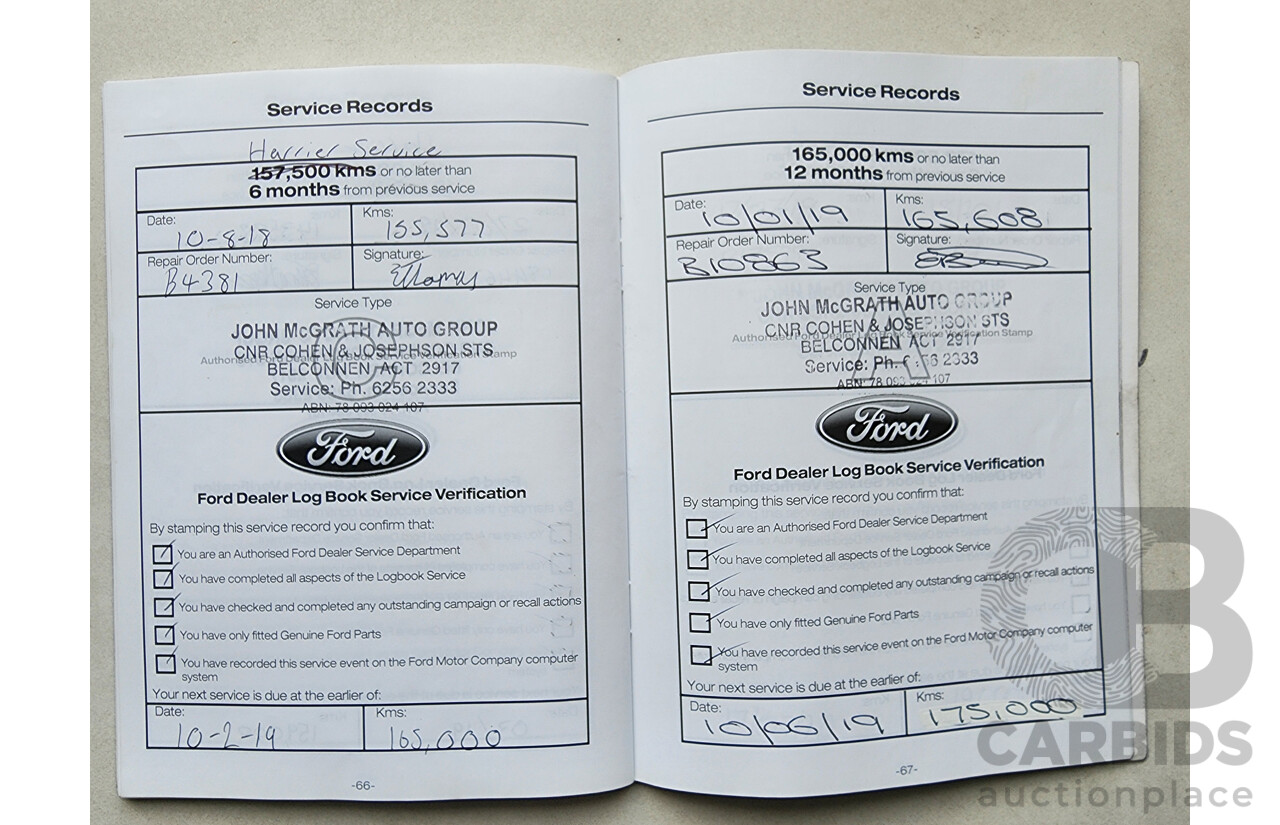 Service Records
Harrier Service
157,500 kms or no later than
6 months from previous service
Date:
10-8-18
Kms:
155,577
Repair Order Number:
B4381
Signature:
Service Type
C
JOHN McGRATH AUTO GROUP
CNR COHEN & JOSEPHSON STS
Authorised Ford Dealer Log Book Service Verification Stamp
BELCONNEN ACT 2917
Service: Ph. 6256 2333
ABN: 78 093 024 107
Ford
Ford Dealer Log Book Service Verification
By stamping this service record you confirm that:
You are an Authorised Ford Dealer Service Department
You have completed all aspects of the Logbook Service
You have checked and completed any outstanding campaign or recall actions
You have only fitted Genuine Ford Parts
You have recorded this service event on the Ford Motor Company computer
system
Your next service is due at the earlier of:
Date:
10-2-19
Kms:
165,000
-66-
Service Records
165,000 kms or no later than
12 months from previous service
Date:
10/01/19
Kms:
165,608
Repair Order Number:
B10863
Signature:
Service Type
A
JOHN McGRATH AUTO GROUP
CNR COHEN & JOSEPHSON STS
Authorised Ford Dealer Log Book Service Verification Stamp
BELCONNEN ACT 2917
Service: Ph. 6256 2333
ABN 78 093 024 107
Ford
Ford Dealer Log Book Service Verification
By stamping this service record you confirm that:
You are an Authorised Ford Dealer Service Department
You have completed all aspects of the Logbook Service
You have checked and completed any outstanding campaign or recall actions
You have only fitted Genuine Ford Parts
You have recorded this service event on the Ford Motor Company computer
system
Your next service is due at the earlier of:
Date:
10/06/19
Kms:
175,000
-67-
CB
CARBIDS
auctionplace